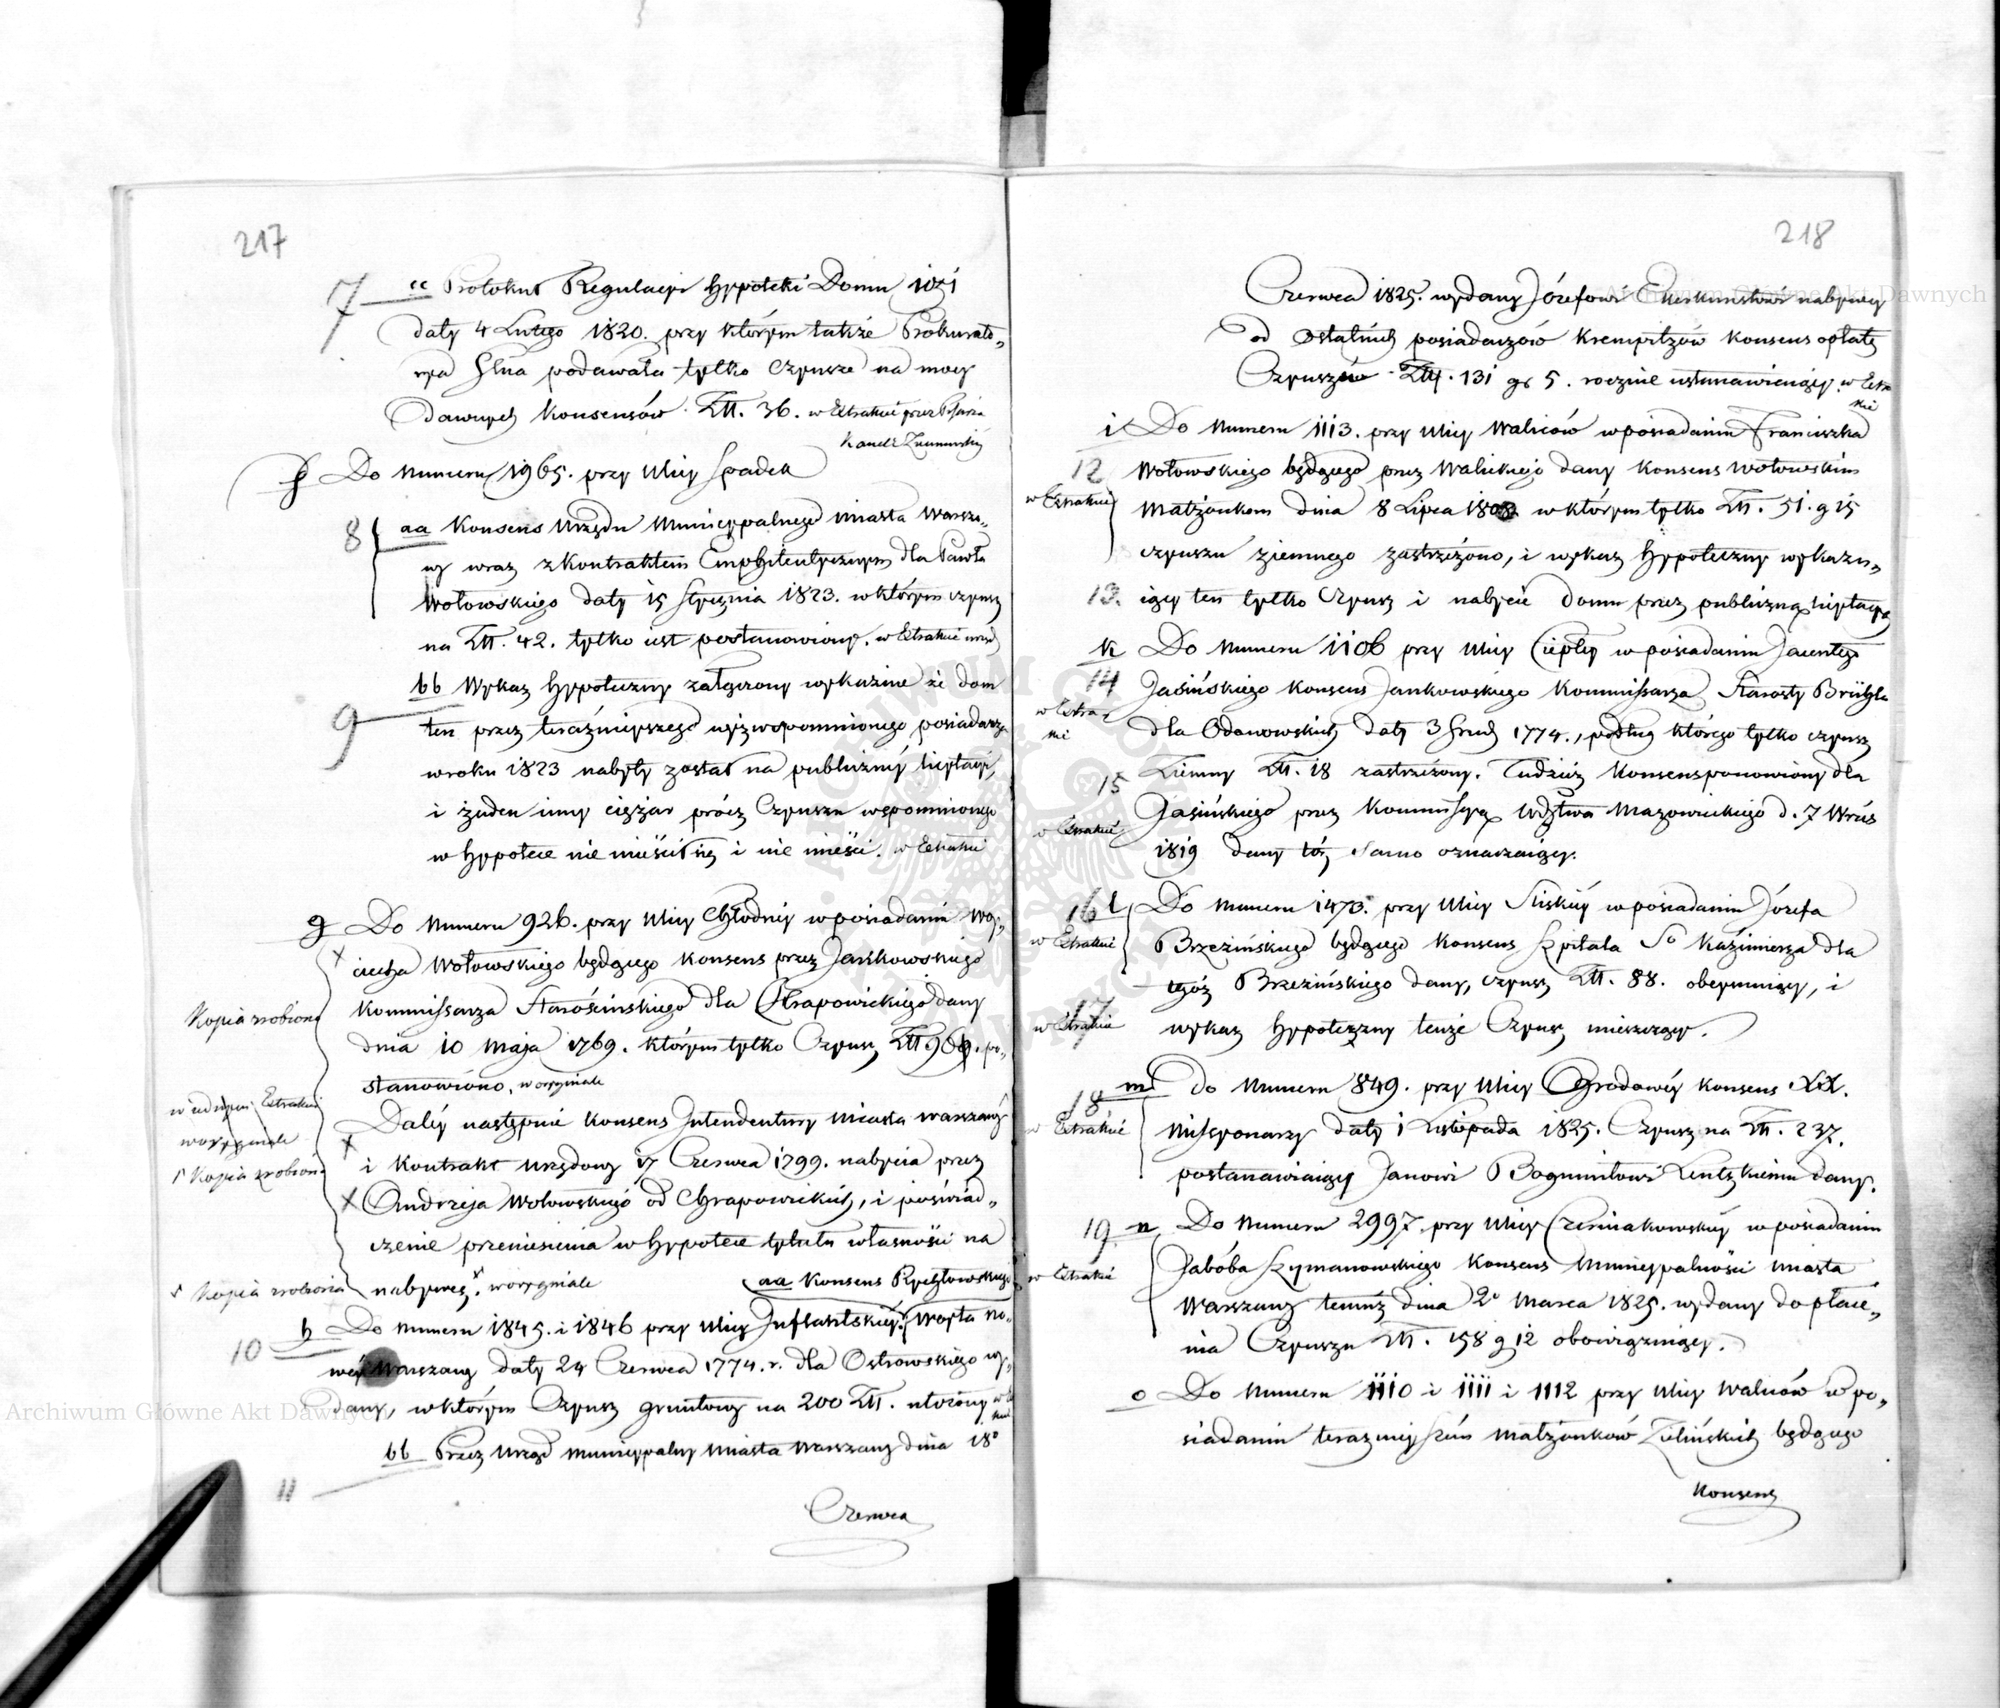 217
7 cc Protokuł Regulacyi Hypoteki Domu 1051
daty 4 Lutego 1820. przy którym także Prokurato„
rya podawała tylko Czynsze na mocy
dawnych Konsensów Złł. 36. w Extrakcie przez
f Do Numeru 1965. przy Ulicy Spadek
8 aa Konsens Urzędu Municypalnego Miasta Warsza„
wy wraz z Kontraktem Emphiteutycznym dla Pawła
Wołowskiego daty 15 Stycznia 1823. w którym czynsz
na Złł. 42. tylko iest postanowiony. w Extrakcie
9 bb Wykaz Hypoteczny załączony wykazuie że dom
ten przez teraźnieyszego wyżwspomnionego posiadacza
w roku 1823 nabyty został na publiczney licytacyi,
i żaden inny ciężar prócz Czynszu wspomnionego
w Hypotece nie mieścił się i nie mieści. w Extrakcie
g Do Numeru 926. przy Ulicy Chłodney w posiadaniu Woy„
ciecha Wołowskiego będącego Konsens przez Jankowskiego
Kommissarza Starościńskiego dla Chrapowickiego dany
Kopia zrobiona
dnia 10 Maja 1769. którym tylko Czynsz Złł. po„
stanowiono. w oryginale
Daley następuie Konsens Intendentury Miasta Warszawy
w Extrakcie
w oryginale
i Kontrakt urzędowy 17 Czerwca 1799. nabycia przez
Kopia zrobiona
Andrzeja Wołowskiego od Chrapowickich, i poświad„
czenie przeniesienia w Hypotece tytułu własności na
nabywcę. w oryginale
Kopia zrobiona
aa Konsens Rychłowskiego
10 h Do Numeru 1845. i 1846 przy Ulicy Inflantskiey Woyta No„
wey Warszawy daty 24 Czerwca 1774. r. dla Ostrowskiego wy„
dany, w którym Czynsz gruntowy na 200 Złł. ułożony
11 bb Przez Urząd Municypalny Miasta Warszawy dnia 18°
Czerwca
218
Czerwca 1825. wydany Józefowi nabywcy
od ostatnich posiadaczów Krempitzów Konsens opłatę
Czynszów Złł. 131 gr 5. rocznie ustanawiaiący. w Extra
kcie
i Do Numeru 1113. przy Ulicy Waliców w posiadaniu Franciszka
12 Wołowskiego będącego przez Walickiego dany Konsens Wołowskim
w Extrakcie
Małżonkom dnia 8 Lipca w którym tylko Złł. 51. g 15
czynszu ziemnego zastrzeżono, i wykaz Hypoteczny wykazu„
13. iący ten tylko Czynsz i nabycie domu przez publiczną licytacyą
k Do Numeru 1106 przy Ulicy Ciepłey w posiadaniu Jacentego
14 Jasińskiego Konsens Jankowskiego Kommissarza Starosty Brühla
w Extra
kcie
dla Odanowskich daty 3 Grud 1774., podług którego tylko czynsz
15 Ziemny Złł. 18 zastrzeżony. Tudzież Konsens ponowiony dla
Jasińskiego przez Kommissyą Wdztwa Mazowieckiego d. 7 Wrześ
w Extrakcie
1819 dany toż samo oznaczaiący.
16 l Do Numeru 1473. przy Ulicy Śliskiey w posiadaniu Józefa
w Extrakcie
Brzezińskiego będącego Konsens Szpitala S° Kazimierza dla
tegoż Brzezińskiego dany, czynsz Złł. 88. obeymuiący, i
17 wykaz Hypoteczny tenże Czynsz mieszczący.
w Extrakcie
18 m do Numeru 849. przy Ulicy Ogrodowey Konsens XX.
w Extrakcie
Missyonarzy daty 1 Listopada 1825. Czynsz na Złł. 237.
postanawiaiący Janowi Bogumiłowi Lentzkiemu dany.
19 n Do Numeru 2997 przy Ulicy Czerniakowskiey w posiadaniu
Jakóba Szymanowskiego Konsens Municypalności Miasta
w Extrakcie
Warszawy temuż dnia 2° Marca 1825. wydany do płace„
nia Czynszu Złł. 158 g 12 obowiązuiący.
o Do Numeru 1110 i 1111 i 1112 przy Ulicy Waliców w po„
siadaniu teraznieyszem Małżonków Zielińskich będącego
Konsens
Archiwum Główne Akt Dawnych
Archiwum Główne Akt Dawnych